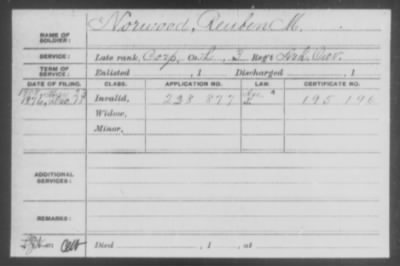 NAME OF SOLDIER: Norwood, Reuben M.
SERVICE: Late rank, Corp, Co. L, 3 Reg't Ind. Cav.
TERM OF SERVICE: Enlisted , 1 Discharged , 1
DATE OF FILING. CLASS. APPLICATION NO. LAW. CERTIFICATE NO.
1876, 18 Invalid, 238 877 195 196
Widow,
Minor,
ADDITIONAL SERVICES:
REMARKS:
Died , 1 , at